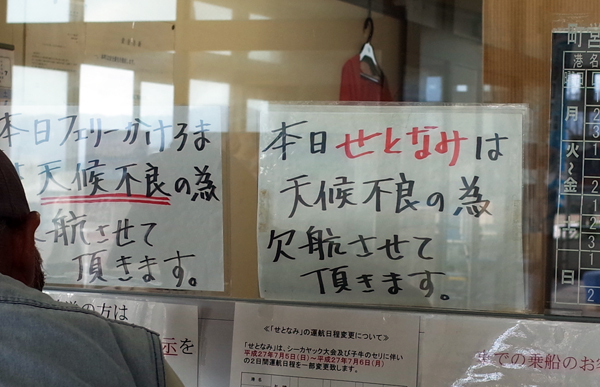 本日フェリーかけろま
天候不良の為
航させて
頂きます。
本日せとなみは
天候不良の為
欠航させて
頂きます。
の方は
示を
≪「せとなみ」の運航日程変更について≫
「せとなみ」は、シーカヤック大会及び子牛のセリに伴い
平成27年7月5日(日)～平成27年7月6日(月)
の2日間運航日程を一部変更致します。
までの乗船のお客
町営
港名
月
火～金
日